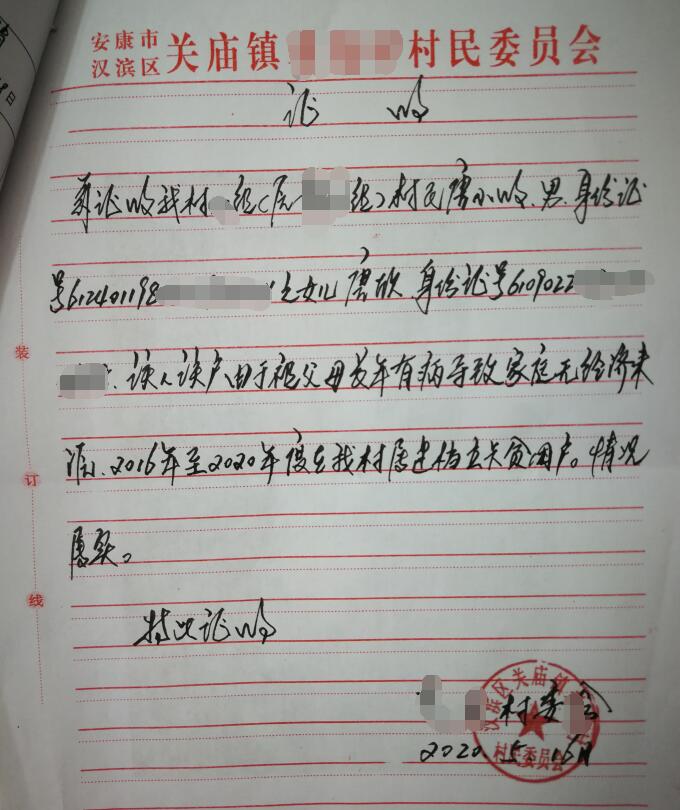 安康市
汉滨区 关庙镇 村民委员会
证 明
兹证明我村 组(原 组)村民唐小明、男、身份证
号612401198 之女儿唐欣 身份证号6109022
、该人该户由于祖父母常年有病导致家庭无经济来
源、2016年至2020年度在我村属建档立卡贫困户。情况
属实。
特此证明
村委会
2020.5.
汉滨区关庙镇
村民委员会
装
订
线